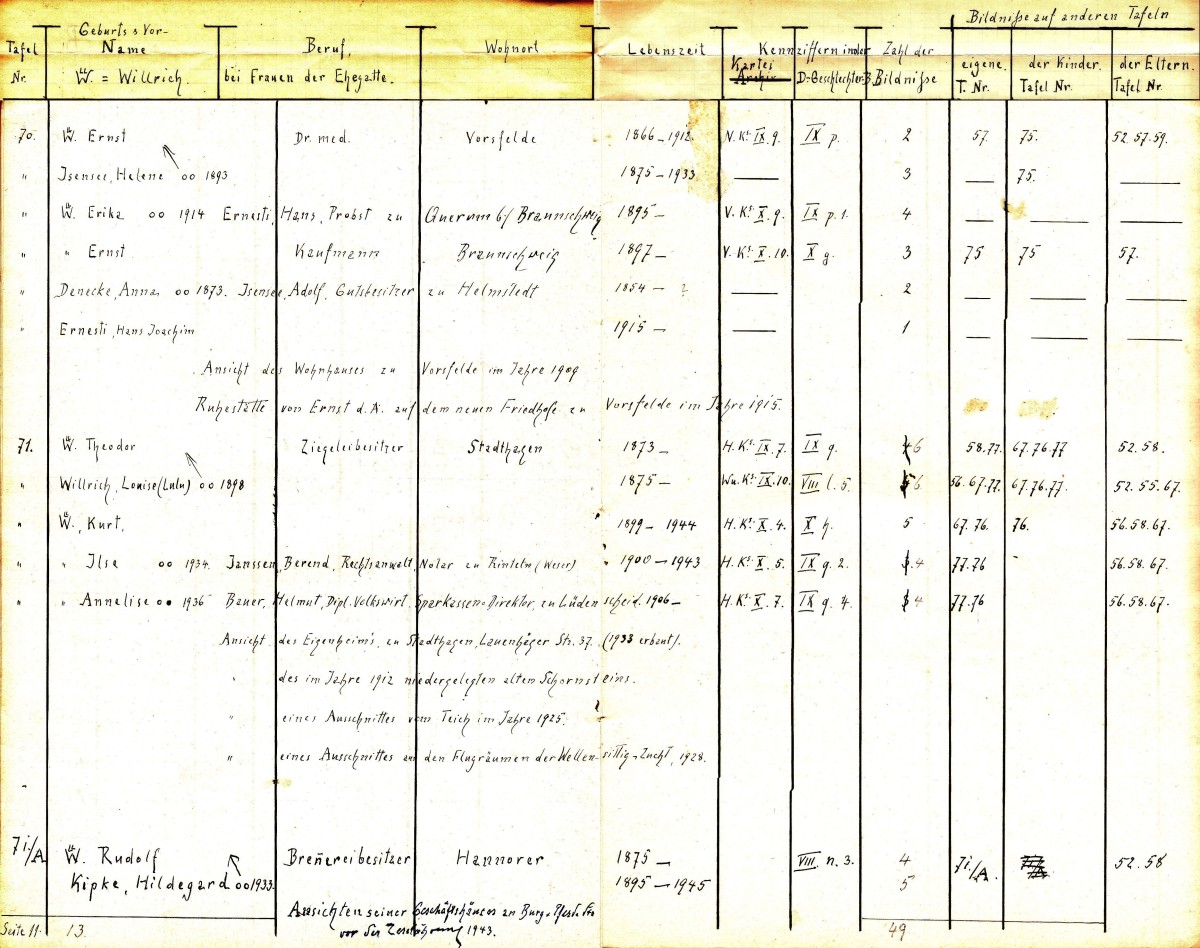 Bildniße auf anderen Tafeln
Tafel Geburts & Vor- Beruf, Wohnort Lebenszeit Kennziffern in der Zahl der
Nr. Name bei Frauen der Ehegatte. Kartei Archiv D-Geschlechter-B. Bildniße eigene. der Kinder. der Eltern.
W. = Willrich. T. Nr. Tafel Nr. Tafel Nr.
70. W. Ernst Dr. med. Vorsfelde 1866 – 1912 N. Ks. IX. 9. IX p. 2 57. 75. 52. 57. 59.
" Isensee, Helene oo 1893 1875 – 1933 — 3 — 75. —
" W. Erika oo 1914 Ernesti, Hans, Probst zu Querum b/ Braunschweig 1895 – V. Ks. X. 9. IX p. 1. 4 — — —
" " Ernst Kaufmann Braunschweig 1897 – V. Ks. X. 10. X g. 3 75 75 57.
" Denecke, Anna oo 1873. Isensee, Adolf, Gutsbesitzer zu Helmstedt 1854 – ? — 2 — — —
" Ernesti, Hans Joachim 1915 – — 1 — — —
Ansicht des Wohnhauses zu Vorsfelde im Jahre 1909
Ruhestätte von Ernst d. Ä. auf dem neuen Friedhofe zu Vorsfelde im Jahre 1915.
71. W. Theodor Ziegeleibesitzer Stadthagen 1873 – H. Ks. IX. 7. IX q. 6 58. 77. 67. 76. 77 52. 58.
" Willrich, Louise (Lulu) oo 1898 1875 – Wu. Ks. IX. 10. VIII l. 5. 6 56. 67. 77. 67. 76. 77. 52. 55. 67.
" W., Kurt, 1899 – 1944 H. Ks. X. 4. X h. 5 67. 76. 76. 56. 58. 67.
" " Ilse oo 1934. Janssen, Berend, Rechtsanwalt, Notar zu Rinteln (Weser) 1900 – 1943 H. Ks. X. 5. IX q. 2. 4 77. 76 - 56. 58. 67.
" " Annelise oo 1936 Bauer, Helmut, Dipl. Volkswirt, Sparkassen-Direktor, zu Lüdenscheid. 1906 – H. Ks. X. 7. IX q. 4. 4 77. 76 56. 58. 67.
Ansicht des Eigenheim's, zu Stadthagen, Lauenhäger Str. 37. (1933 erbaut).
" des im Jahre 1912 niedergelegten alten Schornsteins.
" eines Ausschnittes vom Teich im Jahre 1925.
" eines Ausschnittes an den Flugräumen der Wellensittig-Zucht, 1928.
71/A W. Rudolf Breñereibesitzer Hannover 1875 – VIII. n. 3. 4 71/A. 52. 58
Kipke, Hildegard oo 1933. 1895 – 1945 5
Ansichten seiner Geschäftshäuser
vor der Zerstörung 1943.
Seite 11. 13. 49